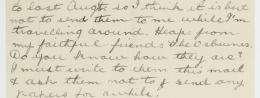 to last Augt. so I think it is best
not to send them to me while I'm
travelling around. Heaps from
my faithful friends the Osbornes.
Do you know how they are?
I must write to them this mail
& ask them not to send any
papers for awhile.